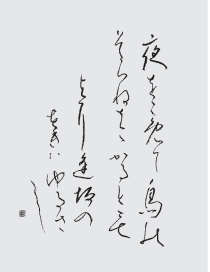 夜をこめて鳥の
そらねはゝかるとも
よに逢坂の
せきはゆるさ
し